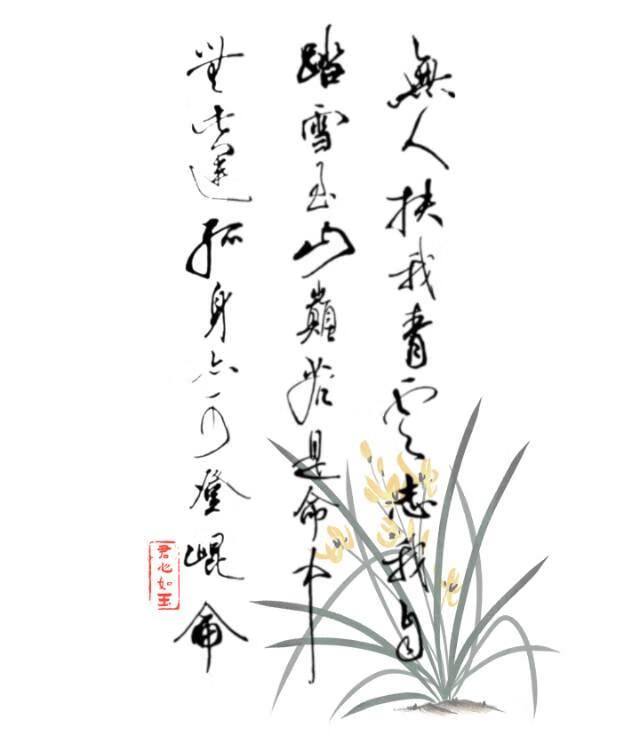 無人扶我青雲志我自
踏雪至山巔若是命中
無此運孤身亦可登崐侖
君心如玉